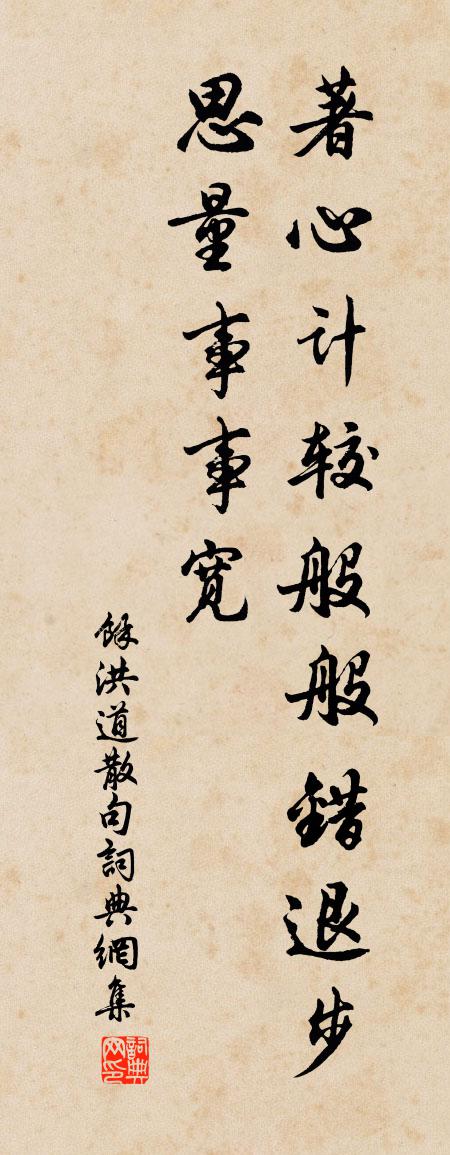 著心计较般般错退步
思量事事宽
馀洪道散句词典網集
词典
网印